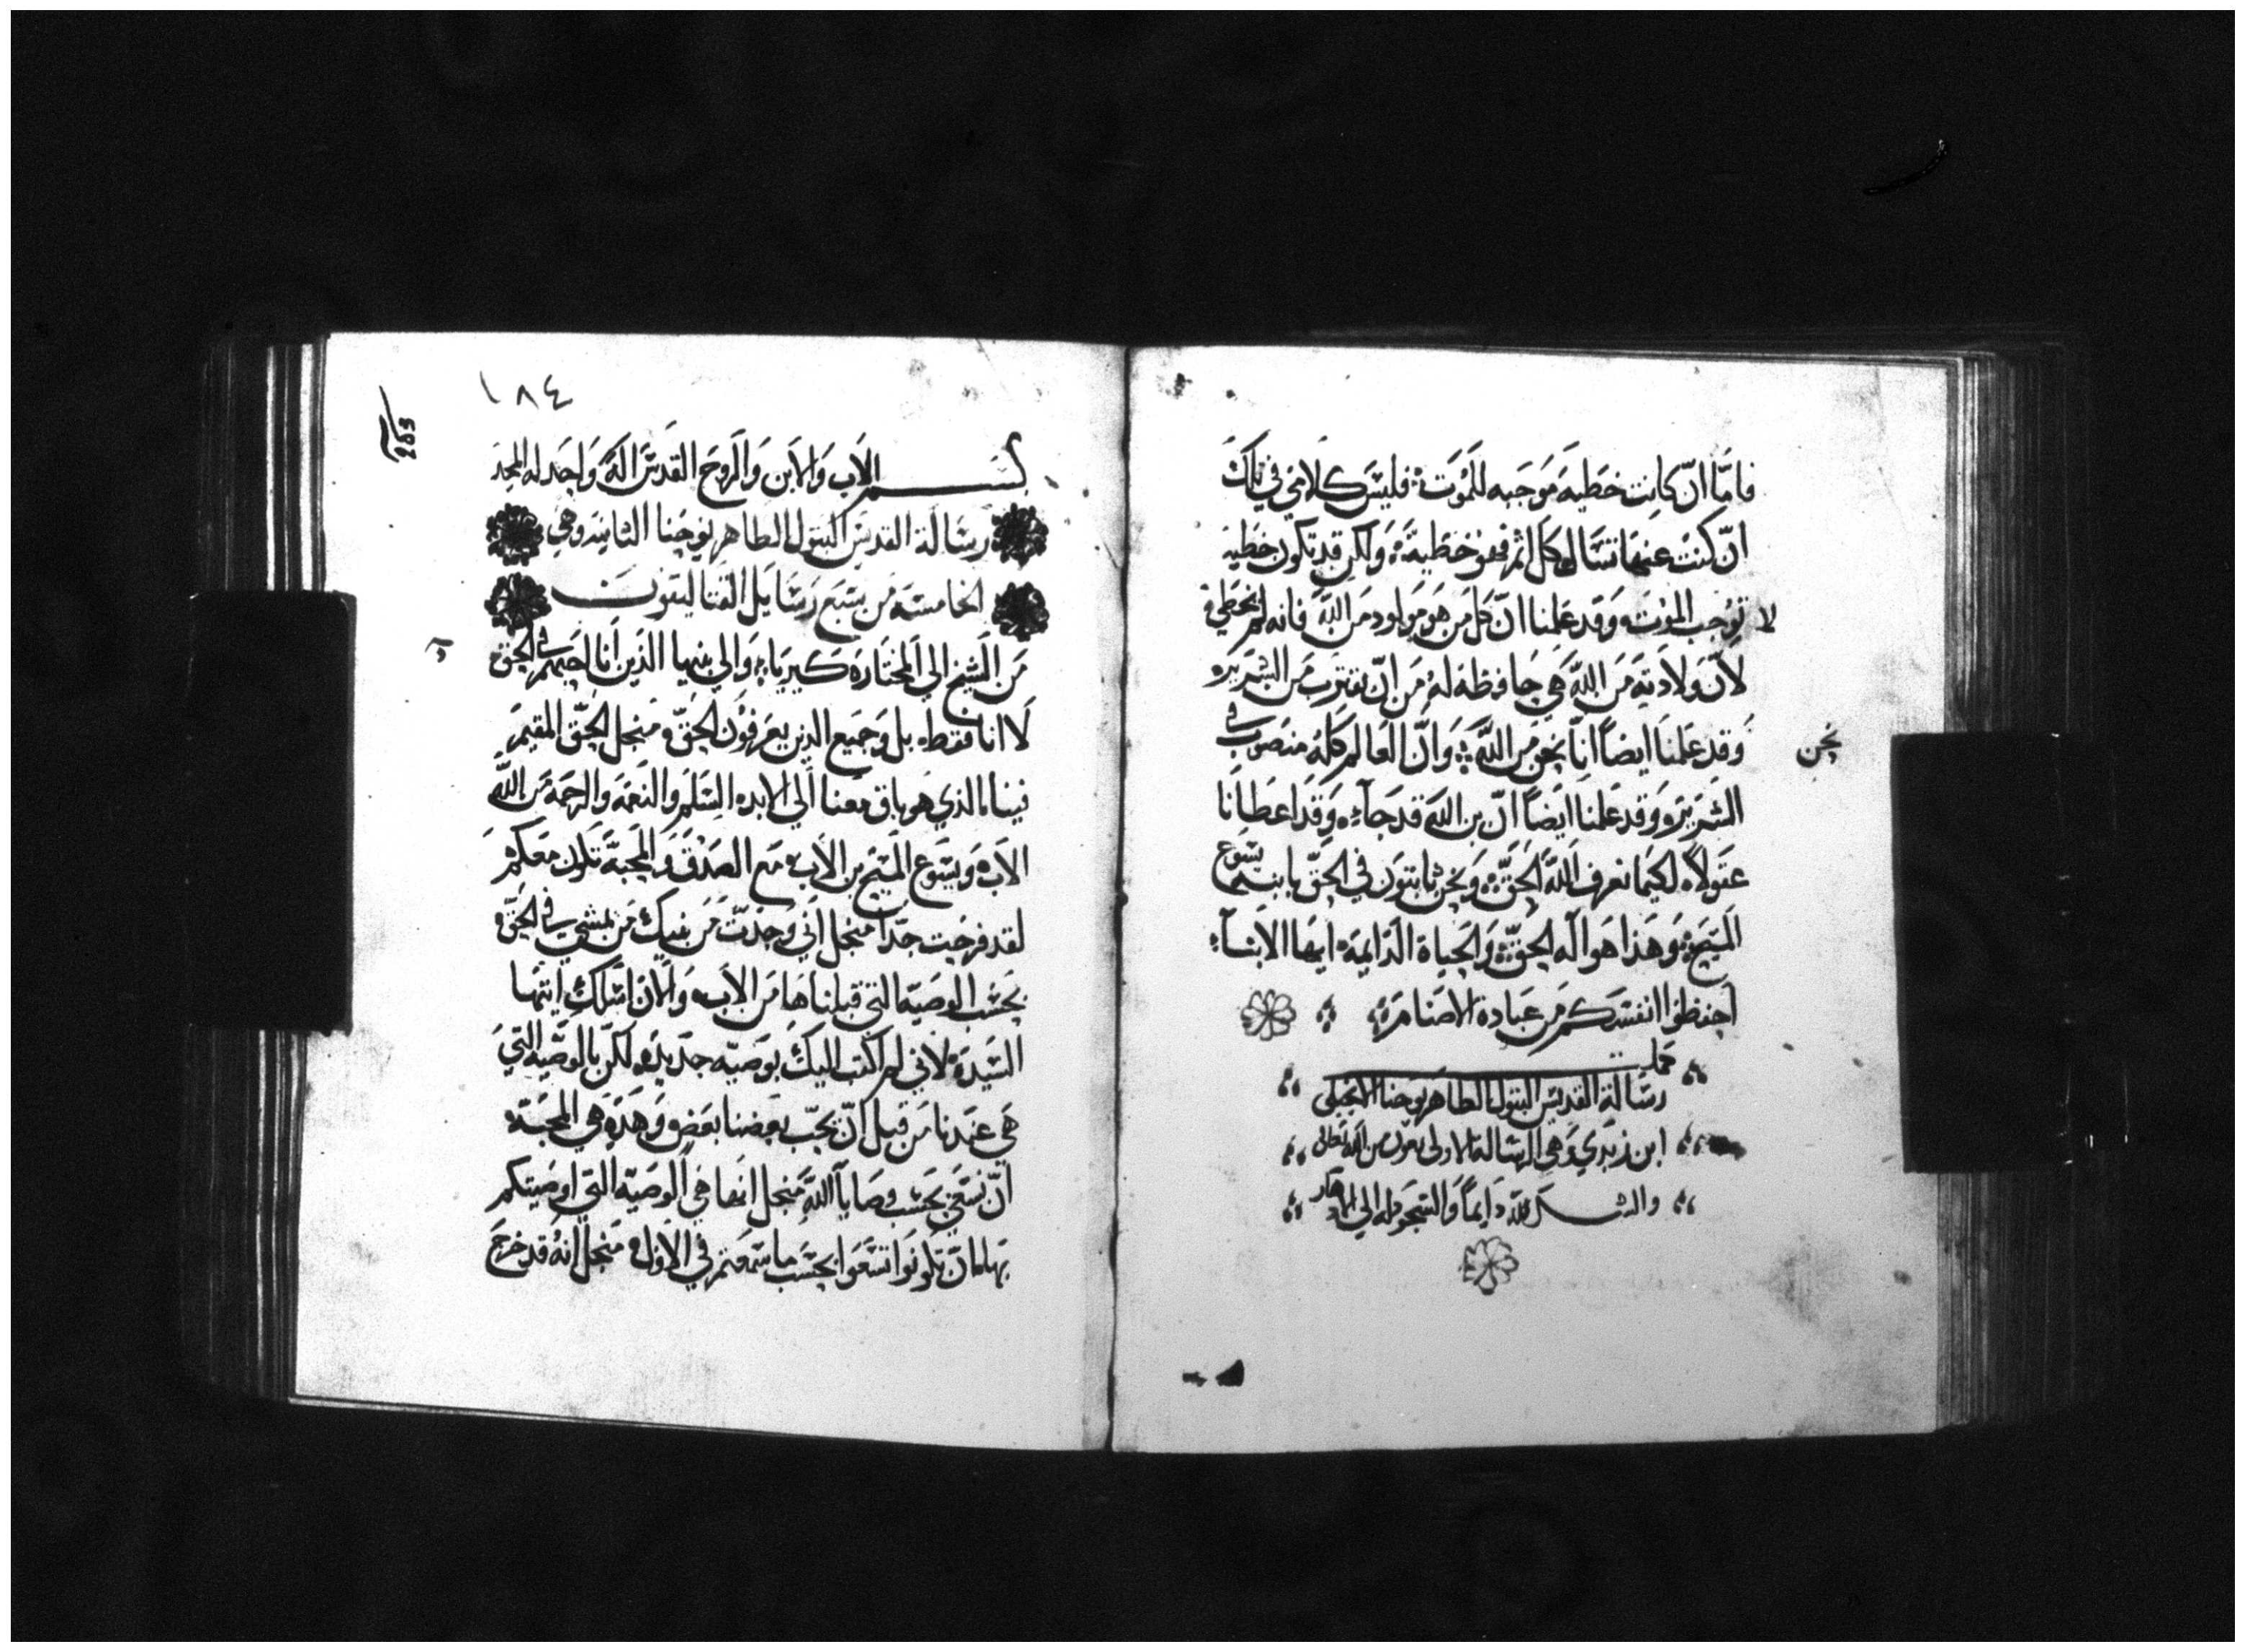 فامّا انّ كانت خطية موجبه للموت فليس كلامي في تلك
انّ كنت عنها تسال كل اثم فهو خطية ولكن قد تكون خطيه
لا توجب الموت وقد علمنا انّ كل من هو مولود من الله فانه لم يخطي
لانّ ولادته من الله هي حافظة له من انّ يقترب من الشرير
وقد علمنا ايضاً انّا نحن من الله وانّ العالم كله منصوب في
نحن
الشرير وقد علمنا ايضاً انّ بن الله قد جآء وقد اعطانا
عقولاً لكيما نعرف الله الحقّ ونحن ثابتون في الحقّ بابنه يسوع
المسيح وهذا هو اله الحقّ والحياة الدايمة ايها الابنآء
احفظوا انفسكم من عبادة الاصنام
كملت
رسالة القديس البتول الطاهر يوحنا الانجيلي
ابن زبدي وهي الرسالة الاولى بعون من الله تعالى
والشكر لله دايماً والسجود له الي
١٨٤
203
بسم الاب والابن والروح القدس اله واحد له المجد
رسالة القديس البتول الطاهر يوحنا الثانيه وهي
الخامسة من سبع رسايل القتاليقون
من الشيخ الي المختارة كيريا والي بنيها الذين انا احبهم في الحق
لا انا فقط بل وجميع الذين يعرفون الحقّ منجل الحقّ المقيم
فينا الذي هو باق معنا الي الابد السلم والنعمة والرحمة من الله
الاب ويسوع المسيح بن الاب مع الصدق والمحبة تكون معكم
لقد فرحت جدّاً منجل اني وجدت من بنيك من يمشي في الحقّ
بحسب الوصية التي قبلناها من الاب والان اسلك ايتها
السيدة لاني لم اكتب اليك بوصيه جديده لكن بالوصّيه التي
هي عندنا من قبل انّ يحبّ بعضنا بعض وهذه هي المحبّة
انّ نسعي بحسب وصايا الله منجل انها هي الوصيه التي اوصيتكم
بها ان تكونوا تسعوا بحسب ما سمعتم في الاول منجل انه قد خرج